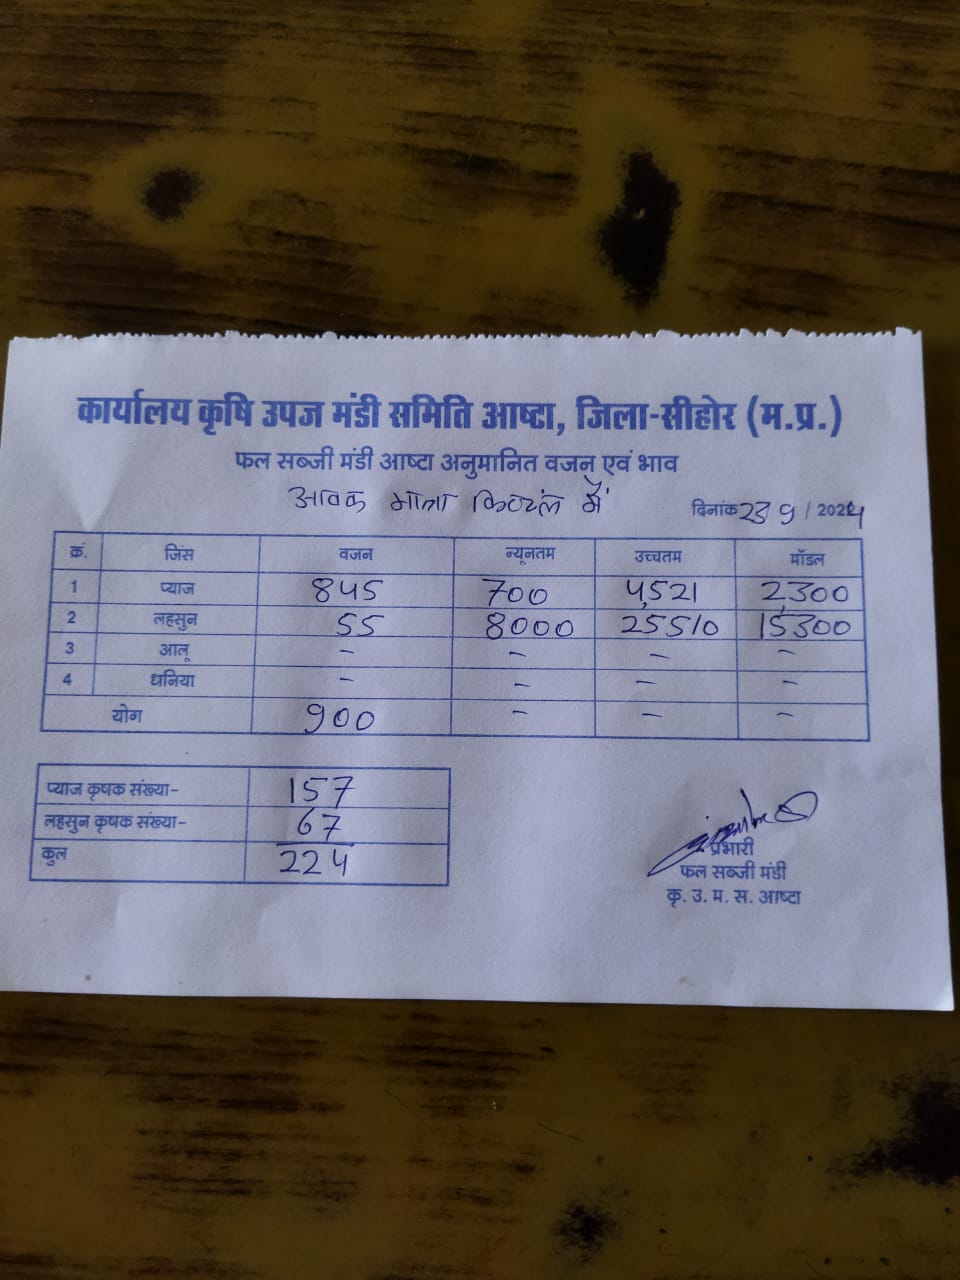 कार्यालय कृषि उपज मंडी समिति आष्टा, जिला-सीहोर (म.प्र.)
फल सब्जी मंडी आष्टा अनुमानित वजन एवं भाव
आवक मात्रा क्विटंल में
दिनांक 23/9/2024
क्रं. जिंस वजन न्यूनतम उच्चतम मॉडल
1 प्याज 845 700 4,521 2,300
2 लहसुन 55 8000 25510 15300
3 आलू - - - -
4 धनिया - - - -
योग 900 - - -
प्याज कृषक संख्या- 157
लहसुन कृषक संख्या- 67
कुल 224
प्रभारी
फल सब्जी मंडी
कृ. उ. म. स. आष्टा